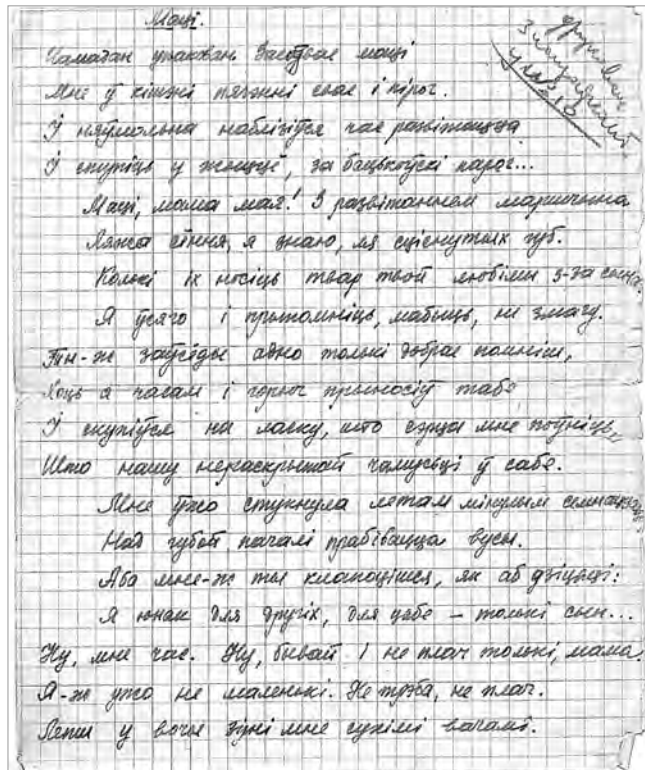 Маці.
Чамадан упакован. Засоўвае маці
Мне ў кішэні пячэнні свае і пірог.
І няўмольна наблізіўся час развітацца
І ступіць у жыццё, за бацькоўскі парог...
Маці, мама мая! З развітаннем маршчынка
Ляжа сіняя, я знаю, ля сціснутых губ.
Колькі іх носіць твар твой любімы з-за сына
Я ўсяго і прыпомніць, мабыць, не змагу.
Ты-ж заўсёды адно толькі добрае помніш,
Хоць я часам і горыч прыносіў табе
І скупіўся на ласку, што сэрца мне поўніць,
Што нашу нераскрытай чамусьці ў сабе.
Мне ўжо стукнула летам мінулым семнаццаць,
Над губой пачалі прабівацца вусы.
Аба мне-ж ты клапоцішся, як аб дзіцяці:
Я юнак для другіх, для цябе – толькі сын...
Ну, мне час. Ну, бывай. І не плач толькі, мама.
Я-ж ужо не маленькі. Не трэба, не плач.
Лепш у вочы зірні мне сухімі вачамі.